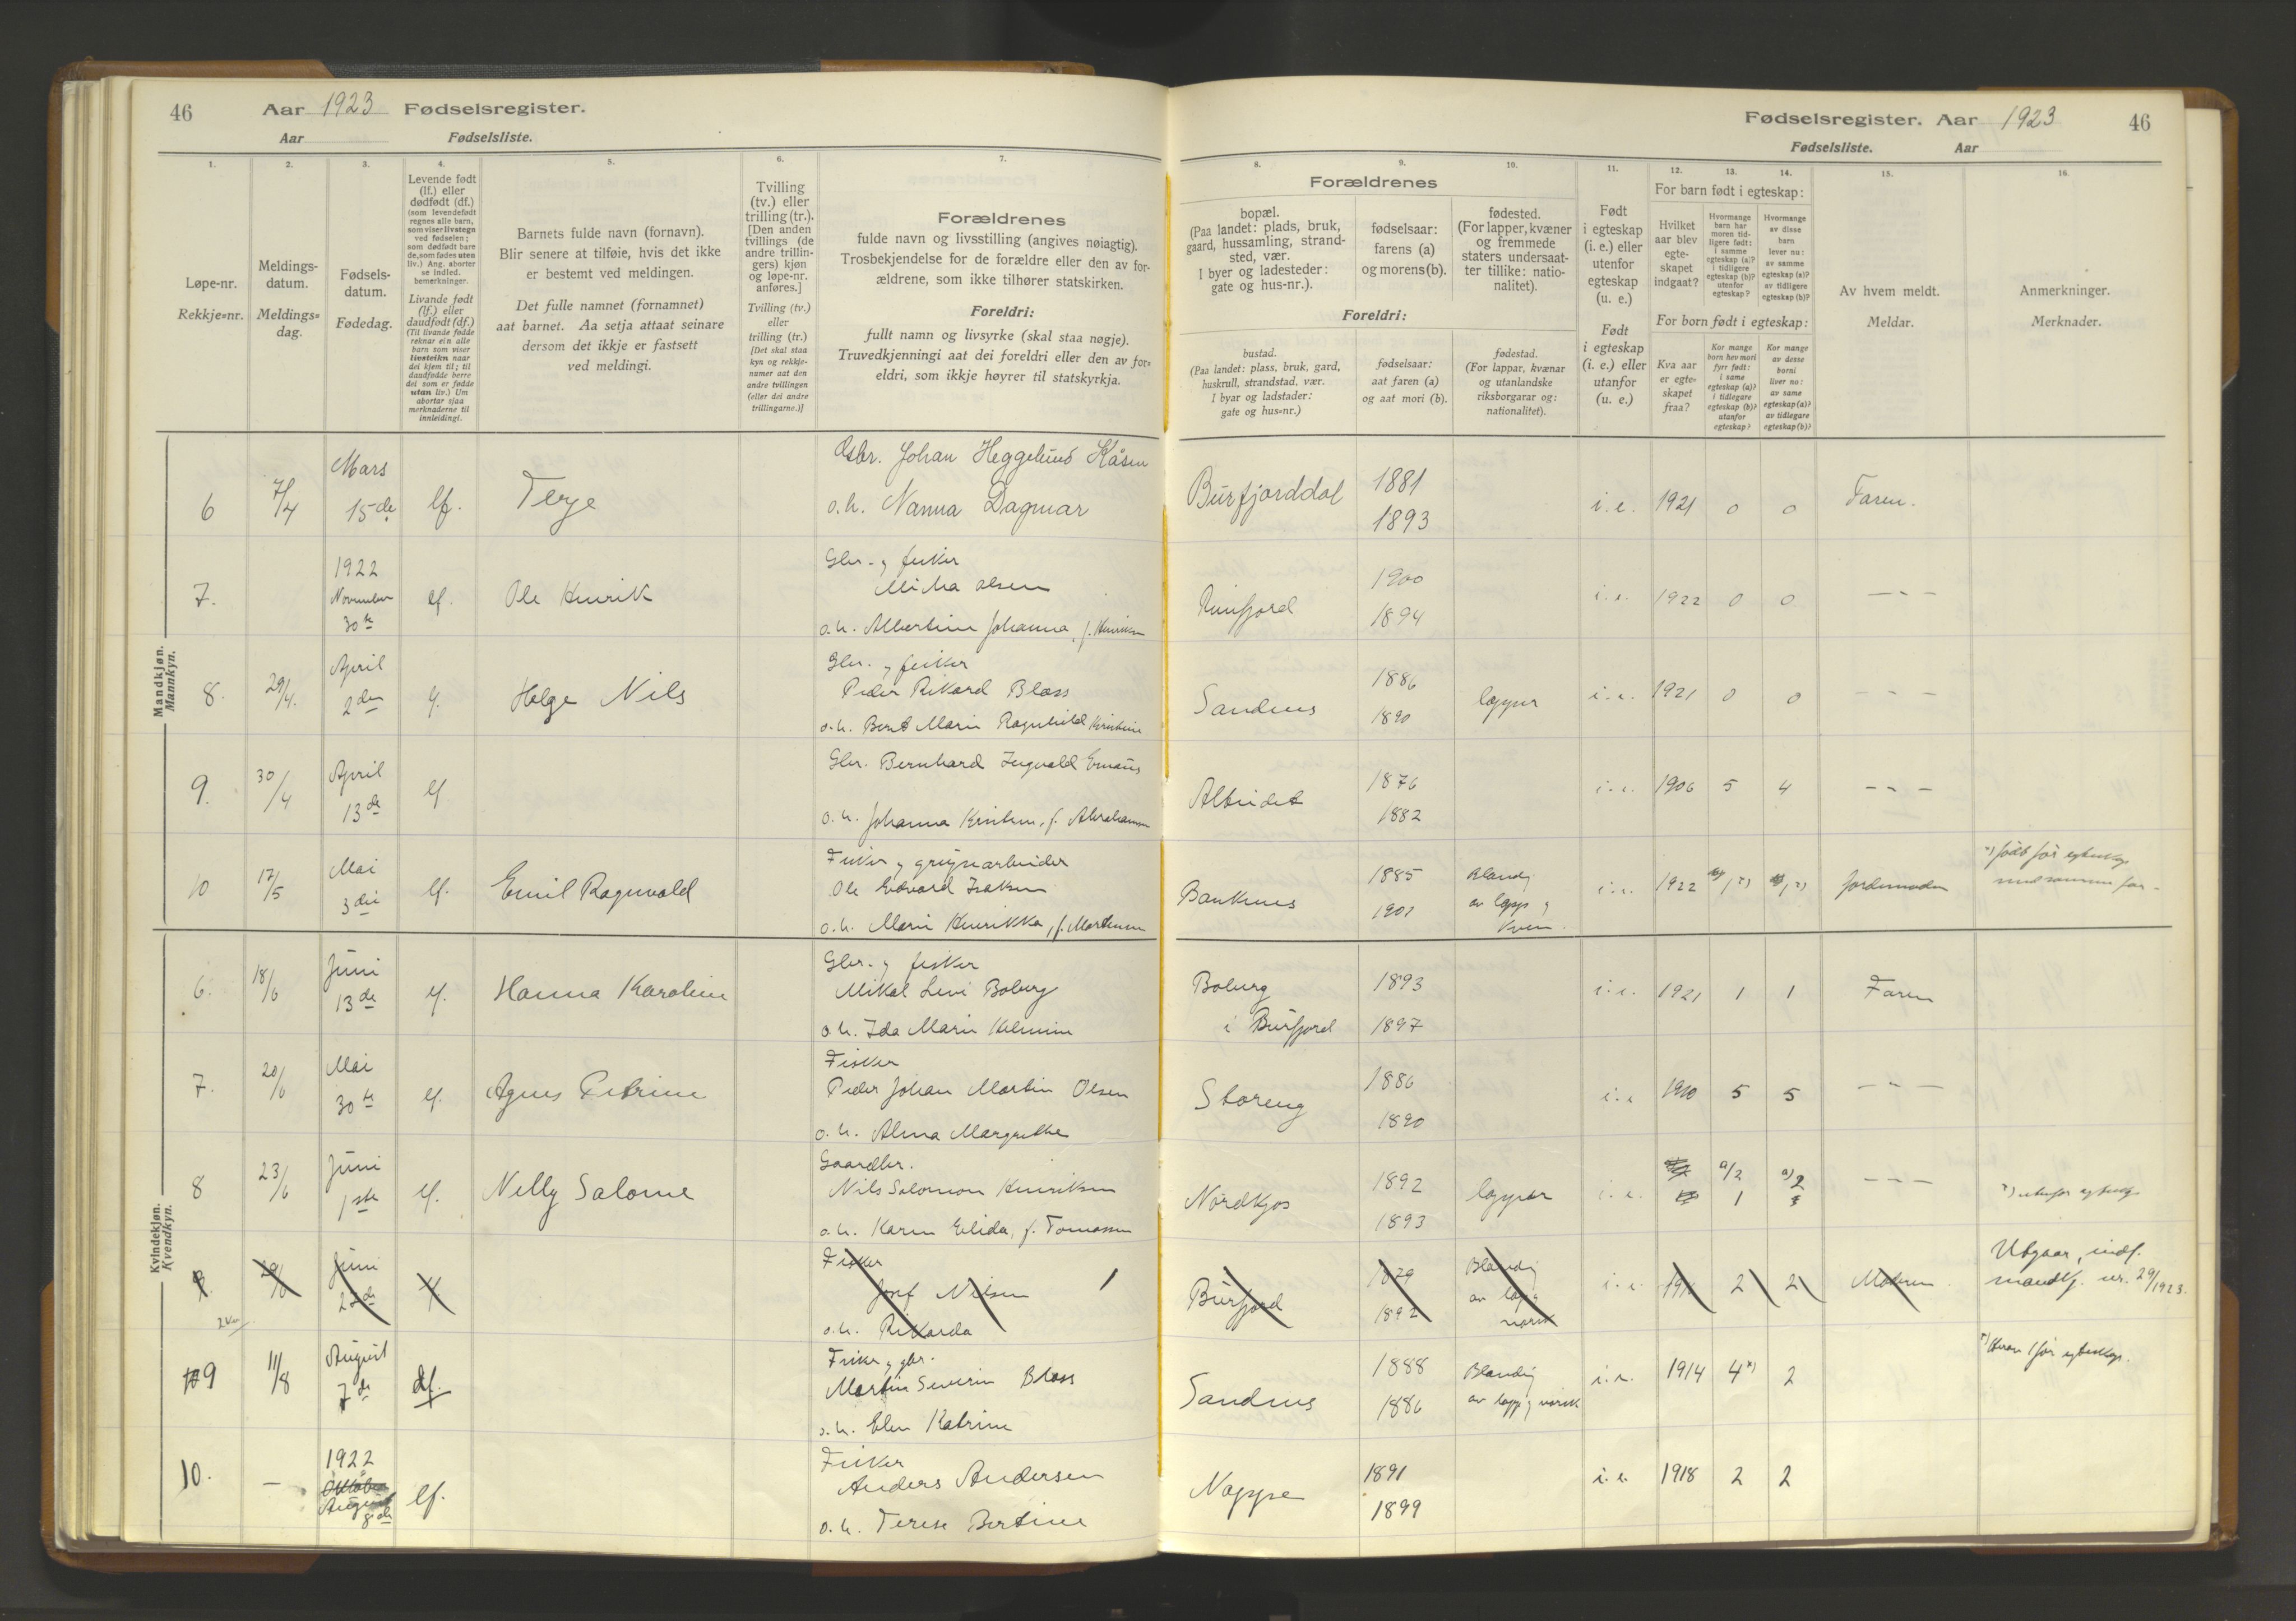 46 Aar 1923 Fødselsregister.
Aar Fødselsliste.
1. 2. 3. 4. 5. 6. 7.
Løpe-nr.
Rekkje-nr.
Meldings-
datum.
Meldings-
dag.
Fødsels-
datum.
Fødedag.
Levende født
(lf.) eller
dødfødt (df.)
(som levendefødt
regnes alle barn,
som viser livstegn
ved fødselen;
som dødfødt bare
de, som fødes uten
liv.) Ang. aborter
se indled.
bemerkninger.
Livande født
(lf.) eller
daudfødt (df.)
(Til livande fødde
reknar ein alle
barn som viser
livsteikn naar
dei kjem til; til
daudfødde berre
dei som er fødde
utan liv.) Um
abortar sjaa
merknaderne til
innleidingi.
Barnets fulde navn (fornavn).
Blir senere at tilføie, hvis det ikke
er bestemt ved meldingen.
Det fulle namnet (fornamnet)
aat barnet. Aa setja attaat seinare
dersom det ikkje er fastsett
ved meldingi.
Tvilling
(tv.) eller
trilling (tr.).
[Den anden
tvillings (de
andre trillin-
gers) kjøn
og løpe-nr.
anføres.]
Tvilling (tv.)
eller
trilling (tr.)
[Det skal staa
kyn og rekkje-
numer aat den
andre tvillingen
(eller dei andre
trillingarne.)]
Forældrenes
fulde navn og livsstilling (angives nøiagtig).
Trosbekjendelse for de forældre eller den av for-
ældrene, som ikke tilhører statskirken.
Foreldri:
fullt namn og livsyrke (skal staa nøgje).
Truvedkjenningi aat dei foreldri eller den av for-
eldri, som ikkje høyrer til statskyrkja.
Mandkjøn.
Mannkyn.
6 7/4 Mars 15de lf. Terje
Johan Heggelund Kåsen
o.h. Nanna Dagmar
7. 1922 November 30te lf. Ole Henrik
Gbr. og fisker
Olsen
o.h. Albertine Johanna, f. Henriksen
8. 29/4. April 2den lf. Helge Nils
Gbr. og fisker
Peder Rikard Blass
o.h. Berit Marie Ragnhild Kristine
9. 30/4 April 13de lf
Gbr. Bernhard Ingvald Emaus
o.h. Johanna Kristine, f. Abrahamsen
10 17/5 Mai 3die lf. Emil Ragnvald
Fisker og grubearbeider
Ole Edvard Isaksen
o.h. Marie Henrikka, f. Mortensen
Kvindekjøn.
Kvendkyn.
6. 18/6 Juni 13de lf. Hanna Karoline
Gbr. og fisker
Mikal Levi Boberg
o.h. Ida Marie Helmine
7. 20/6 Mai 30te lf. Agnes Petrine
Fisker
Peder Johan Martin Olsen
o.h. Alma Margrethe
8 23/6 Juni 1ste lf. Nelly Salome
Gaardbr.
Nils Salomon Henriksen
o.h. Karen Elida, f. Tomassen
9. 29/6 Juni 23de lf
Fisker
Josef Nilsen
o.h. Rikarda
9 11/8 August 7de df.
Fisker og gbr.
Martin Severin Blass
o.h. Elen Katrine
10. — 1922 Oktober August 8de lf.
Fisker
Anders Andersen
o.h. Terese Bertine
Fødselsregister. Aar 1923 46
Fødselsliste. Aar
8. 9. 10. 11. 12. 13. 14. 15. 16.
Forældrenes
bopæl.
(Paa landet: plads, bruk,
gaard, hussamling, strand-
sted, vær.
I byer og ladesteder:
gate og hus-nr.).
fødselsaar:
farens (a)
og morens (b).
fødested.
(For lapper, kvæner
og fremmede
staters undersaat-
ter tillike: natio-
nalitet).
Foreldri:
bustad.
(Paa landet: plass, bruk, gard,
huskrull, strandstad, vær.
I byar og ladstader:
gate og hus-nr.)
fødselsaar:
aat faren (a)
og aat mori (b).
fødestad.
(For lappar, kvænar
og utanlandske
riksborgarar og:
nationalitet).
Født
i egteskap
(i. e.) eller
utenfor
egteskap
(u. e.)
Født
i egteskap
(i. e.) eller
utanfor
(u. e.)
For barn født i egteskap:
Hvilket
aar blev
egte-
skapet
indgaat?
Hvormange
barn har
moren tid-
ligere født:
i samme
egteskap (a)?
i tidligere
egteskap (b)?
utenfor
egteskap?
Hvormange
av disse
barn
lever nu:
av samme
egteskap (a)?
av tidligere
egteskap (b)?
For born født i egteskap:
Kva aar
er egte-
skapet
fraa?
Kor mange
born hev mori
fyrr født:
i same
egteskap (a)?
i tidlegare
egteskap (b)?
utanfor
egteskap?
Kor mange
av desse
borni
liver no:
av same
egteskap (a)?
av tidlegare
egteskap (b)?
Av hvem meldt.
Meldar.
Anmerkninger.
Merknader.
Burfjorddal 1881 1893 i. e. 1921 0 0 Faren.
1900 1894 i. e. 1922 0 0 — " —
Sandnes 1886 1890 lapper i. e. 1921 0 0 — " —
Alteidet 1876 1882 i. e. 1906 5 4 — " —
Bankenes 1885 1901 Blandg av lapp og kven. i. e. 1922 Jordmoden
x) født før egteskap
med samme far
Boberg
i Burfjord 1893 1897 i. e. 1921 1 1 Faren
Storeng 1886 1890 i. e. 1910 5 5 — " —
Nordkjos 1892 1893 lapper i. e. a/2 1 a) 2 — " —
x) utenfor egteskap
Burfjord 1892 Blandg av lapp og norsk i. e. 2 2 Moderen
Utgaar, indf.
mandkj. nr. 29/1923.
Sandnes 1888 1886 Blandg av lapp og norsk i. e. 1914 4x) 2
x) Herav 1 før egteskap.
Noppe 1891 1899 i. e. 1918 2 2